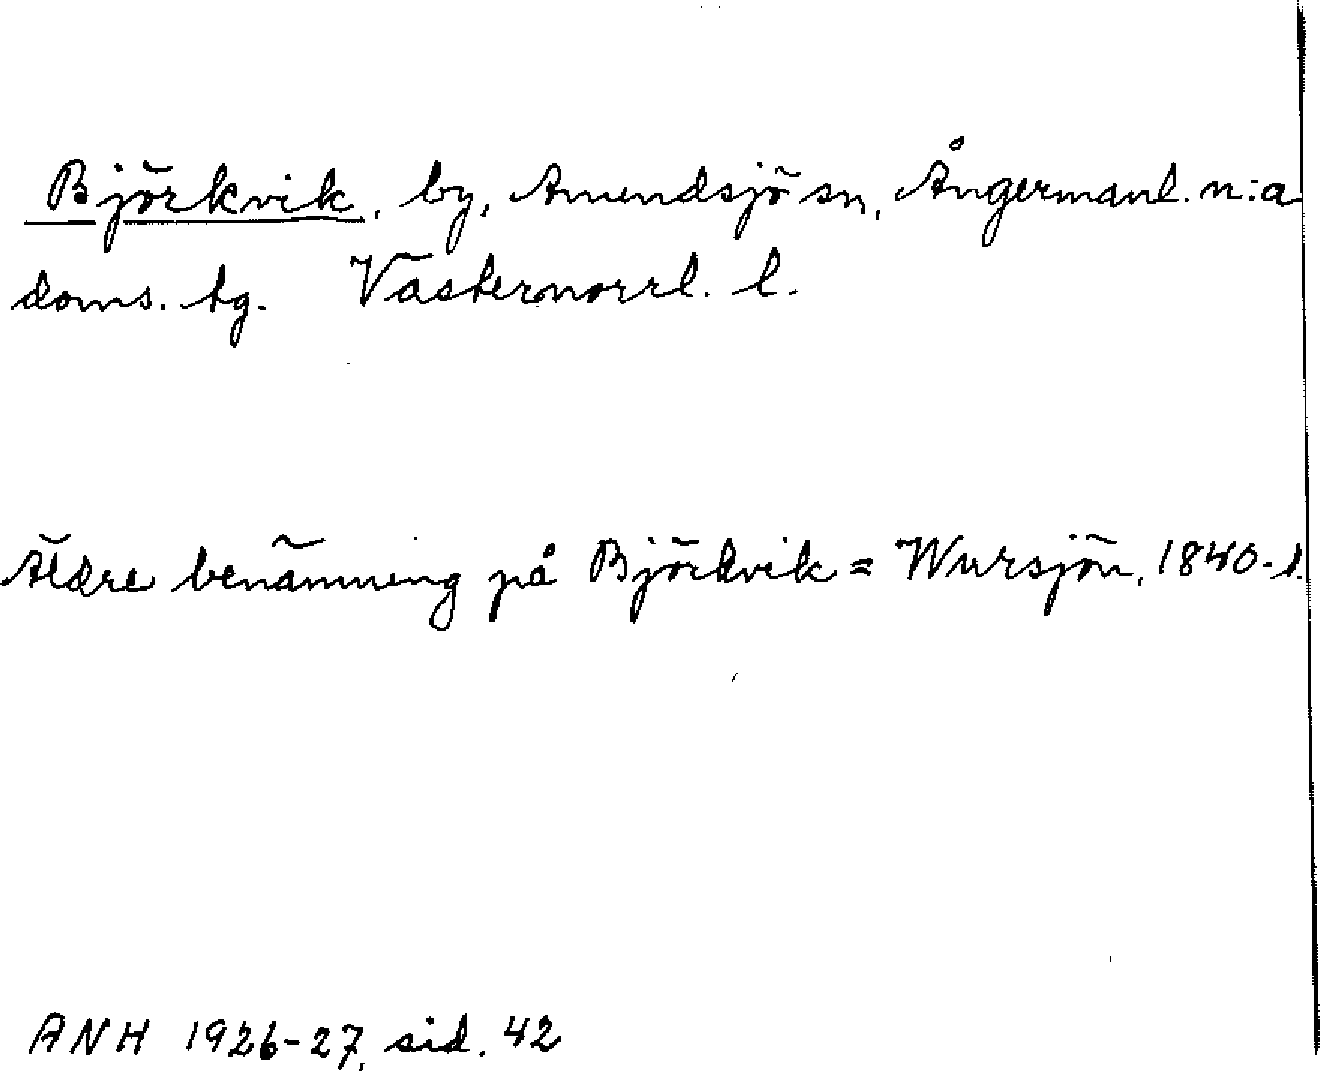 Björkvik, by, Anundsjö sn, Ångermanl. n:a
doms. tg. Västernorrl. l.
Äldre benämning på Björkvik = Wursjön, 1840-t.
ANH 1926-27, sid. 42